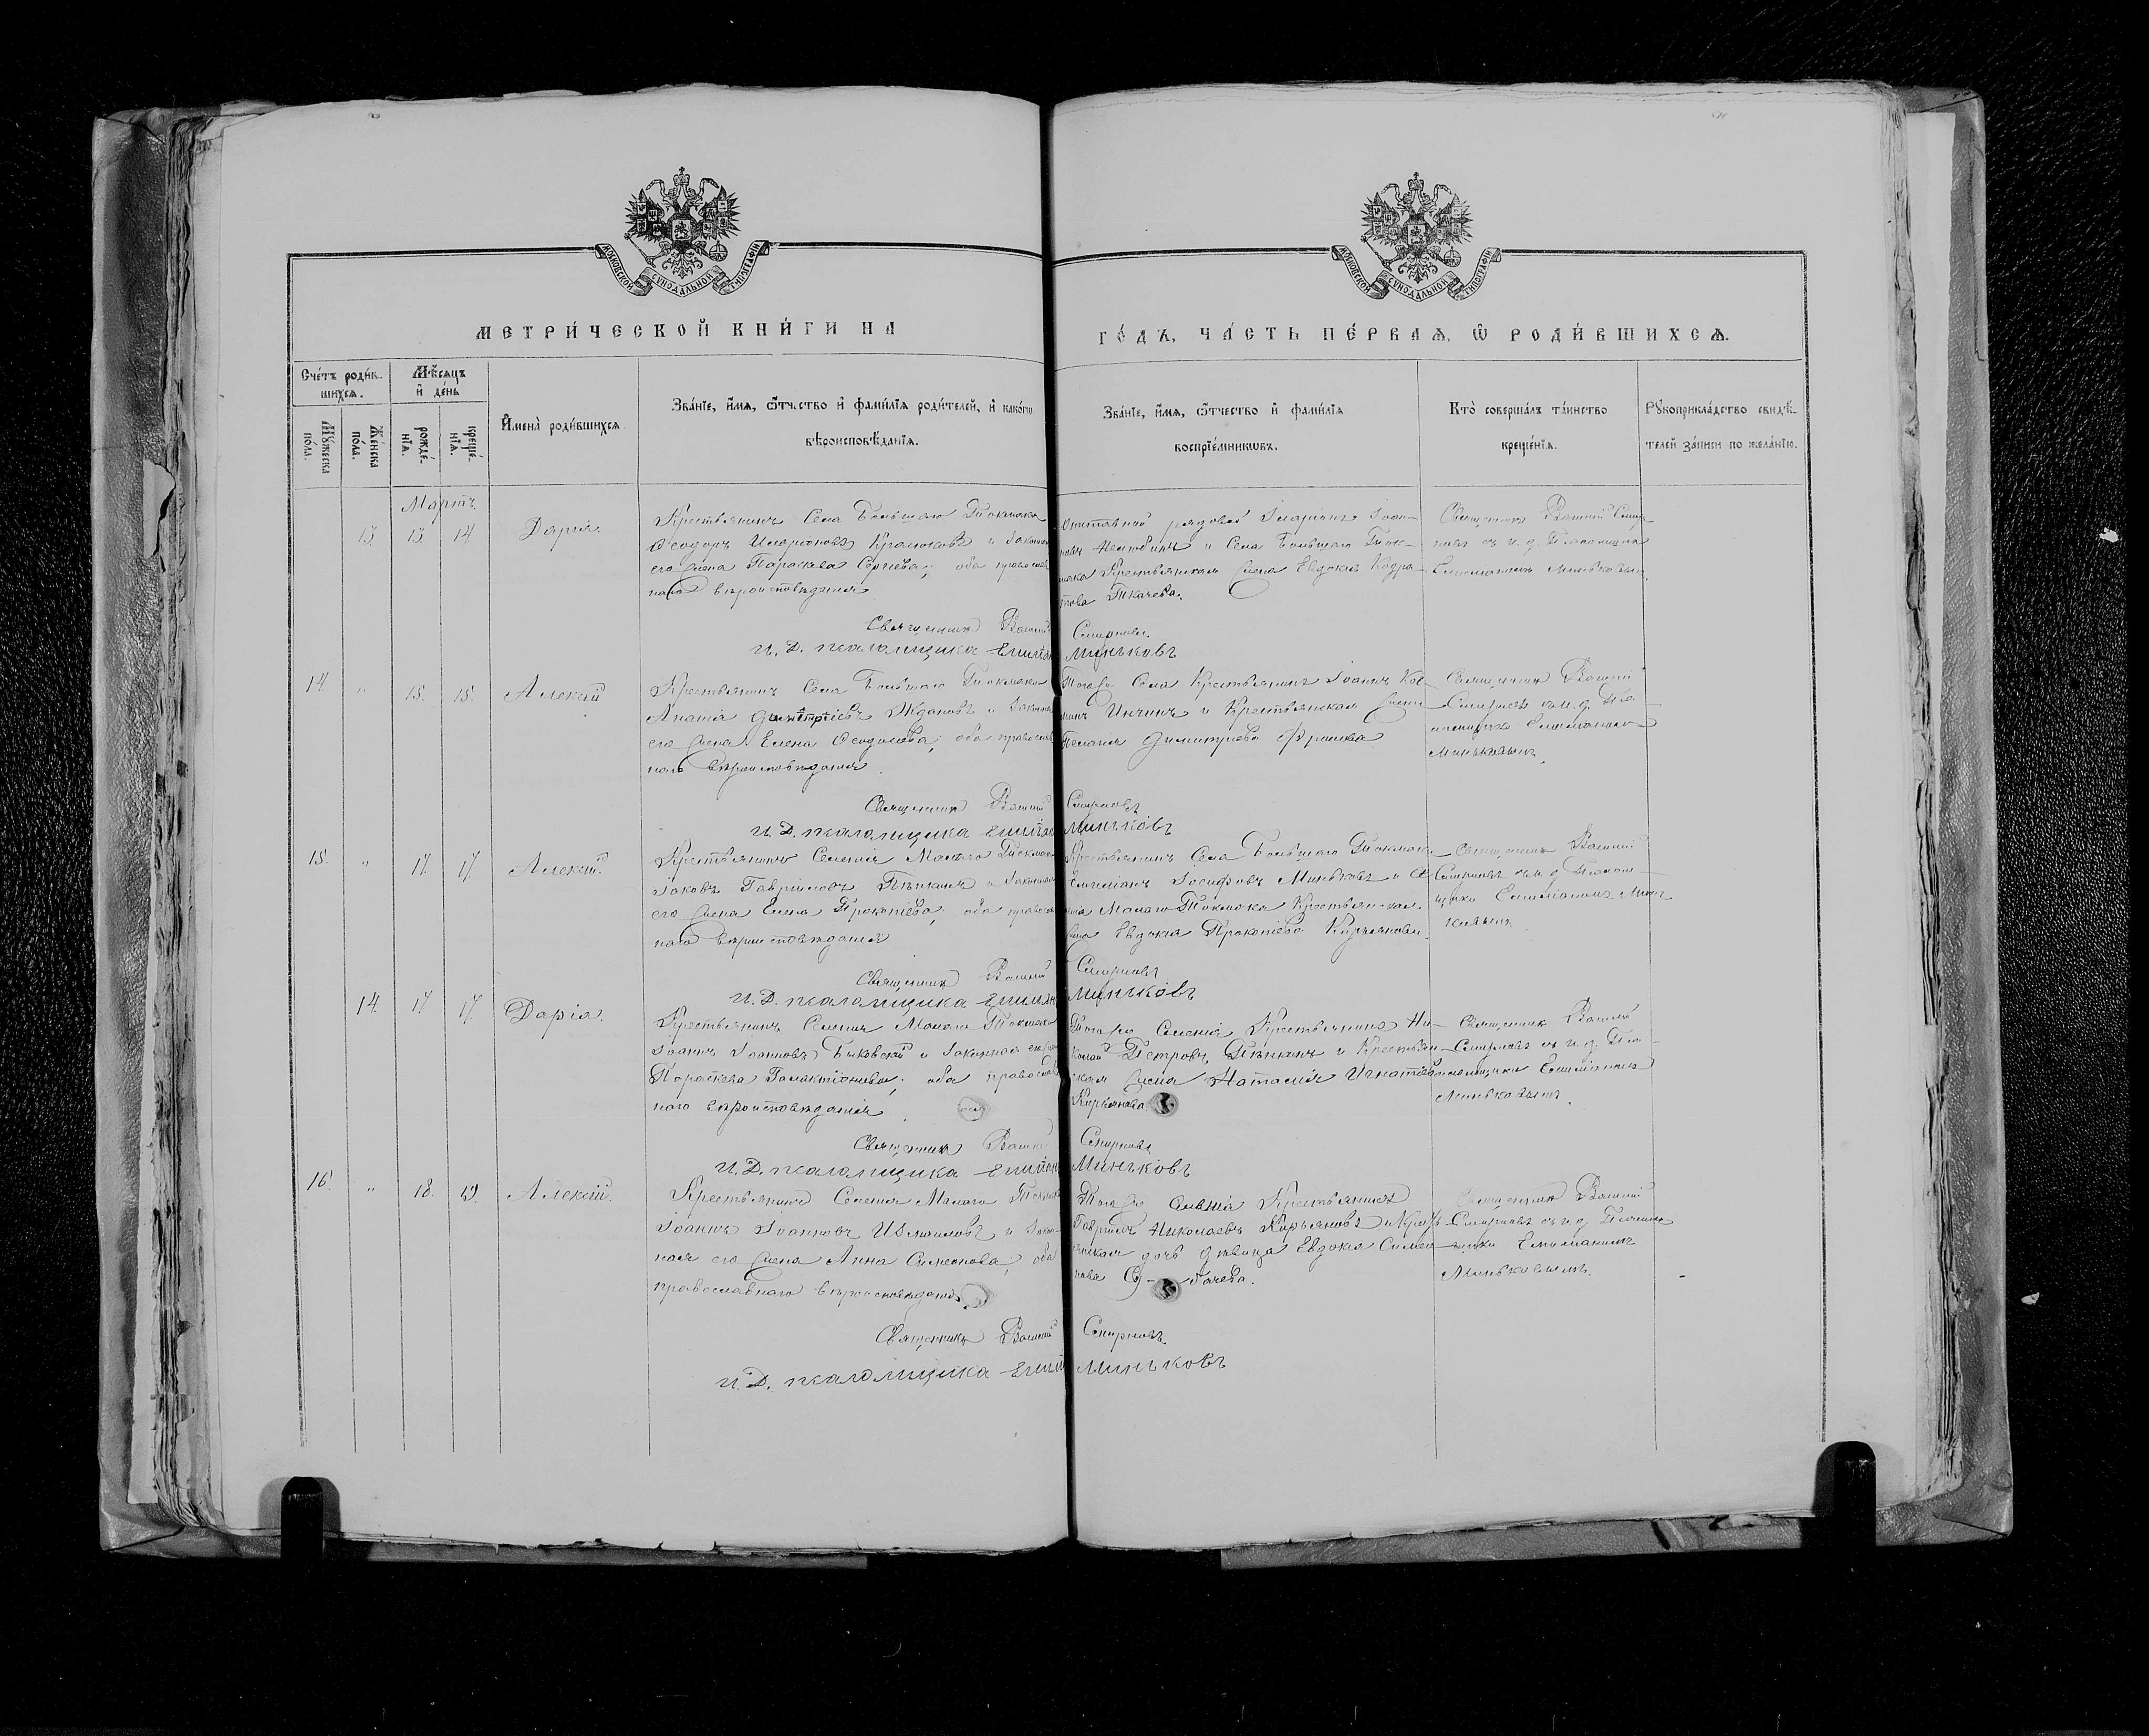 МОСКОВСКОЙ СѴНОДАЛЬНОЙ ТИПОГРАФІИ
МОСКОВСКОЙ СѴНОДАЛЬНОЙ ТИПОГРАФІИ
МЕТРИ́ЧЕСКОЙ КНИ́ГИ НА
ГО́ДЪ, ЧА́СТЬ ПЕ́РВАѦ, Ѽ РОДИ́ВШИХСѦ.
Сче́тъ роди́в-
шихсѧ.
Мѣ́сѧцъ
и҆ де́нь
Мꙋ́жеска
по́ла.
Же́нска
по́ла.
рожде́-
нїѧ.
креще́-
нїѧ.
И҆мена̀ роди́вшихсѧ
Зва́нїе, и҆́мѧ, ѻ҆́тчество и҆ фами́лїѧ роди́телей, и҆ како́гѡ
вѣроисповѣ́данїѧ.
Зва́нїе, и҆́мѧ, ѻ҆́тчество и҆ фами́лїѧ
воспрїе́мникѡвъ.
Кто̀ соверша́лъ та́инство
креще́нїѧ.
Рꙋкоприкла́дство свидѣ́-
телей за́писи по жела́нїю.
Мартъ
13 13 14 Дарія.
Крестьянинъ Села Большаго Токмака
Ѳеодоръ Иларіоновъ и Законная
его Жена Параскева Сергіева; оба православ
наго вѣроисповѣданія
рядовой Иларіонъ Іоан-
и Села Большаго Ток-
мака Крестьянская Жена Евдокія
Ткачева.
Священникъ Василій Смир-
новъ съ и. д. Псаломщика
Емиліаномъ Миньковымъ.
Священникъ Василій Смирновъ.
И. Д. псаломщика Миньковъ
14. " 15. 15. Алексій
Крестьянинъ Села Большаго Токмака
Димитріевъ Ждановъ и Законная
его Жена Елена Ѳеодосіева; оба православ
наго вѣроисповѣданія
Того же Села Крестьянинъ Іоаннъ
и Крестьянская Жена
Пелагія Димитріева
Священникъ Василій
Смирновъ съ и. д. Пса-
ломщика Емиліаномъ
Миньковымъ.
Священникъ Василій Смирновъ
И. Д. псаломщика Миньковъ
15. " 17. 17. Алексій.
Крестьянинъ Селенія Малаго Токмака
Іаковъ Гавріиловъ Пѣнкинъ и Законная
его Жена Елена Прокопіева; оба православ
наго вѣроисповѣданія
Крестьянинъ Села Большаго Токмака
Емиліанъ Іосифовъ Миньковъ и Се-
Малаго Токмака Крестьянская
Евдокія Прокопіева Кирьянова.
Священникъ Василій
Смирновъ съ и. д. Псалом-
щика Емиліаномъ Минь-
ковымъ.
Священникъ Василій Смирновъ
И. Д. псаломщика Миньковъ
14. 17 17. Дарія.
Крестьянинъ Селенія Малаго Токмака
Іоаннъ Іоанновъ Быковскій и Законная его
Параскева Галактіонова; оба православ
наго вѣроисповѣданія
Того же Селенія Крестьянинъ Ни-
колай Петровъ Пѣнкинъ и Крестьян-
ская Жена Наталія Игнатіева
Кирьянова.
Священникъ Василій
Смирновъ съ и. д. Пса-
ломщика Емиліаномъ
Миньковымъ.
Священникъ Василій Смирновъ
И. Д. псаломщика Миньковъ
16. " 18. 19. Алексій.
Крестьянинъ Селенія Малаго Токмака
Іоаннъ Іоанновъ Измаиловъ и Закон-
ная его Жена Анна Симеонова; оба
православнаго вѣроисповѣданія.
Того же Селенія Крестьянинъ
Гавріилъ Николаевъ Кирьяновъ и Кресть-
янская дочь дѣвица Евдокія Симео-
нова
Священникъ Василій
Смирновъ съ и. д. Псалом-
щика Емиліаномъ
Миньковымъ.
Священникъ Василій Смирновъ.
И. Д. псаломщика Миньковъ